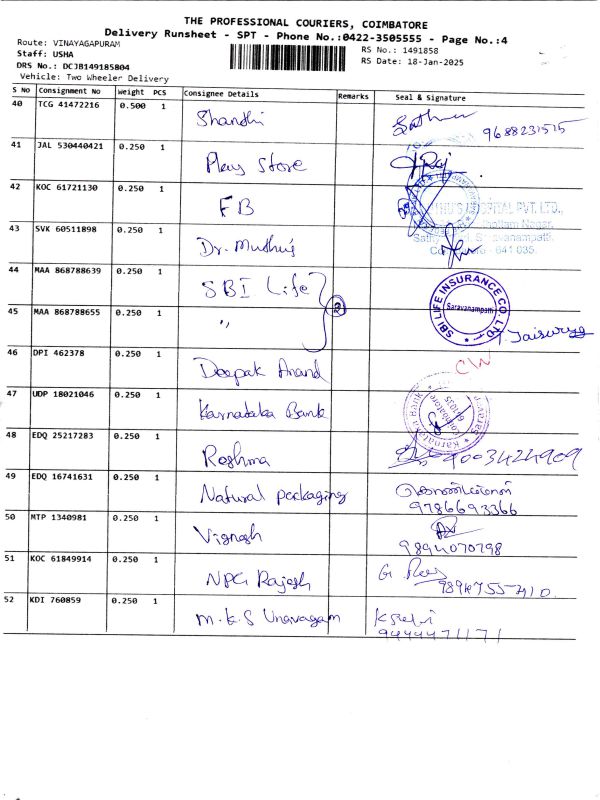 THE PROFESSIONAL COURIERS, COIMBATORE
Delivery Runsheet - SPT - Phone No.:0422-3505555 - Page No.:4
Route: VINAYAGAPURAM
Staff: USHA
DRS No.: DCJB149185804
Vehicle: Two Wheeler Delivery
RS No.: 1491858
RS Date: 18-Jan-2025
S No Consignment No Weight PCS Consignee Details Remarks Seal & Signature
40 TCG 41472216 0.500 1 Shandhi
9688231515
41 JAL 530440421 0.250 1 Play Store
42 KOC 61721130 0.250 1 FB
HOSPITAL PVT. LTD.,
43 SVK 60511898 0.250 1 Dr. Muthu's
641 035.
44 MAA 868788639 0.250 1 SBI Life
2
SBI LIFE INSURANCE CO. LTD.
Saravanampatti
45 MAA 868788655 0.250 1 "
46 DPI 462378 0.250 1 Deepak Anand
CW
47 UDP 18021046 0.250 1 Karnataka Bank
Karnataka Bank
Coimbatore
48 EDQ 25217283 0.250 1 Roshma
9003424909
49 EDQ 16741631 0.250 1 Natural packaging
9786693366
50 MTP 1340981 0.250 1 Vignesh
9894070798
51 KOC 61849914 0.250 1 NPG Rajesh
52 KDI 760859 0.250 1 M.K.S Unavagam
9444471171